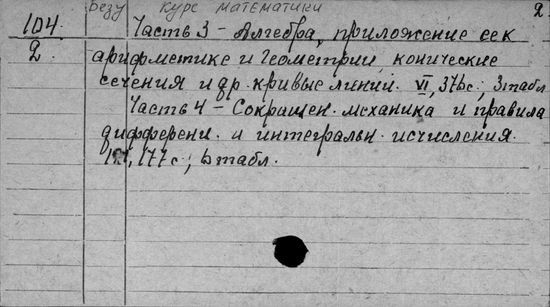 Безу Курс математики 2
104. Часть 3 - Алгебра, приложение еек
2. арифметике и геометрии, конические
сечения и др. кривые линии. VI, 376 с; 3 табл
Часть 4 - Сокращен. механика и правила
дифференц. и интегральн. исчисления.
177 с; 6 табл.